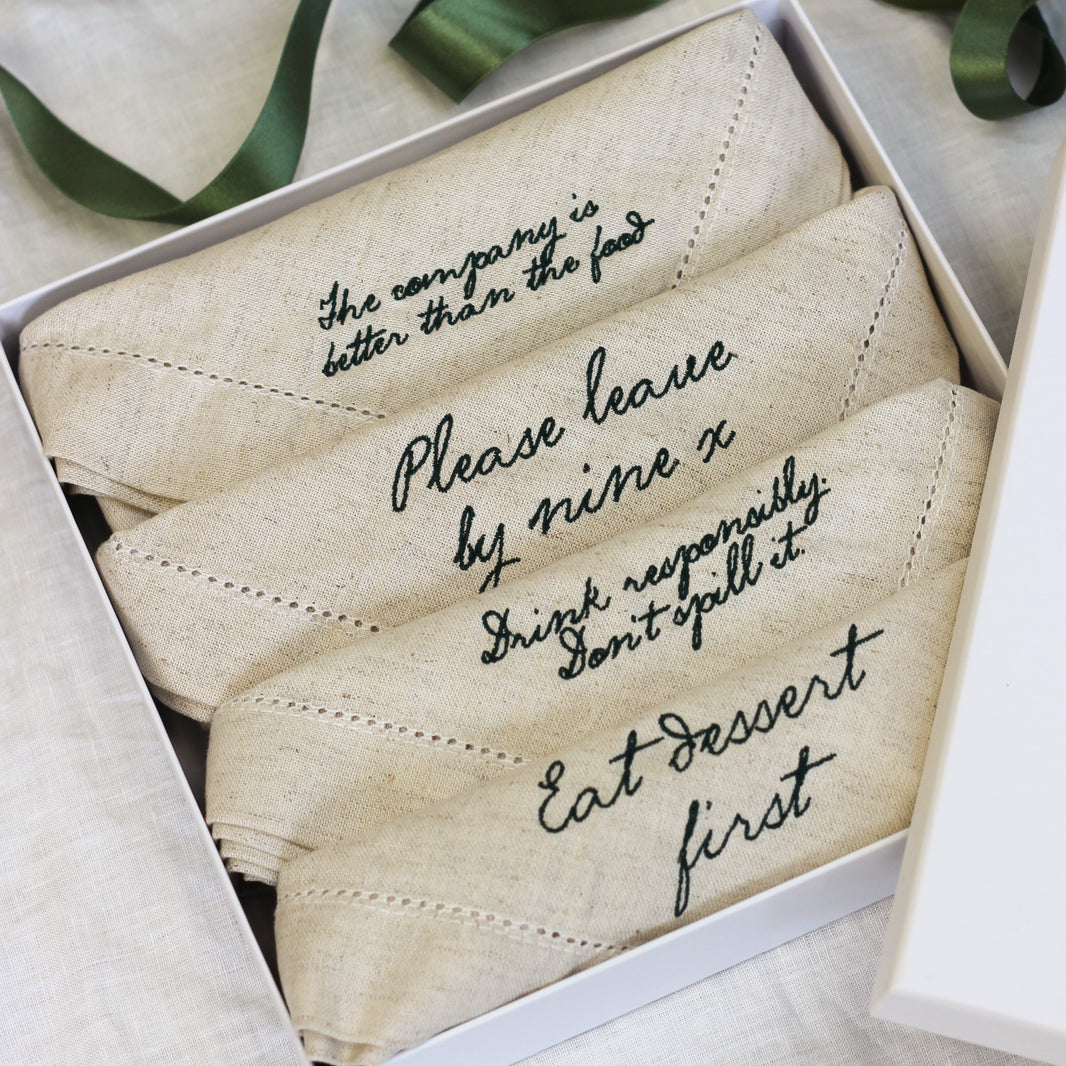 The company is
better than the food
Please leave
by nine x
Drink responsibly.
Don't spill it.
Eat dessert
first